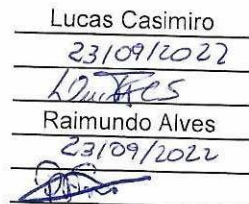 Lucas Casimiro
23/09/2022
Raimundo Alves
23/09/2022